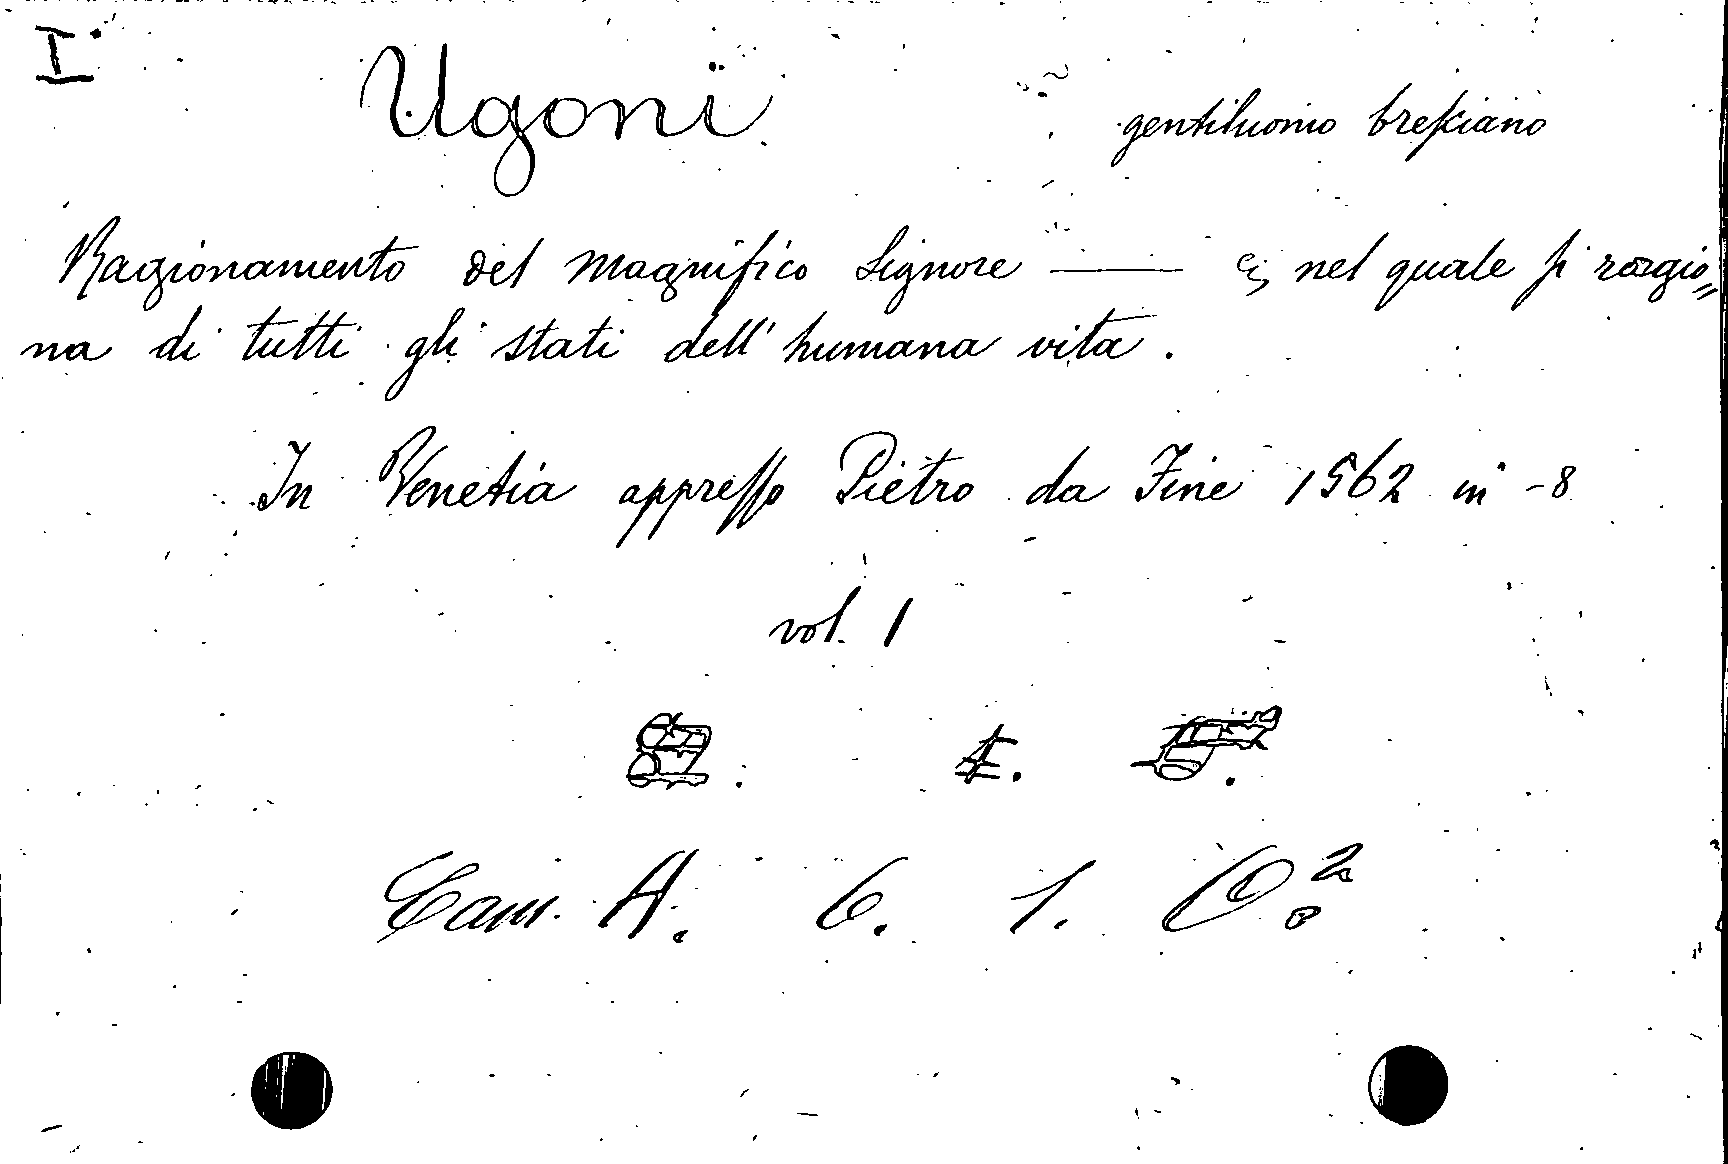 I.
Ugoni gentiluomo breſciano
Ragionamento del magnifico Signore —— &, nel quale ſi ragio〃
na di tutti gli stati dell'humana vita.
In Venetia appreſſo Pietro da Fine 1562 in-8
vol. 1
Cam. A. 6. 1. O.²